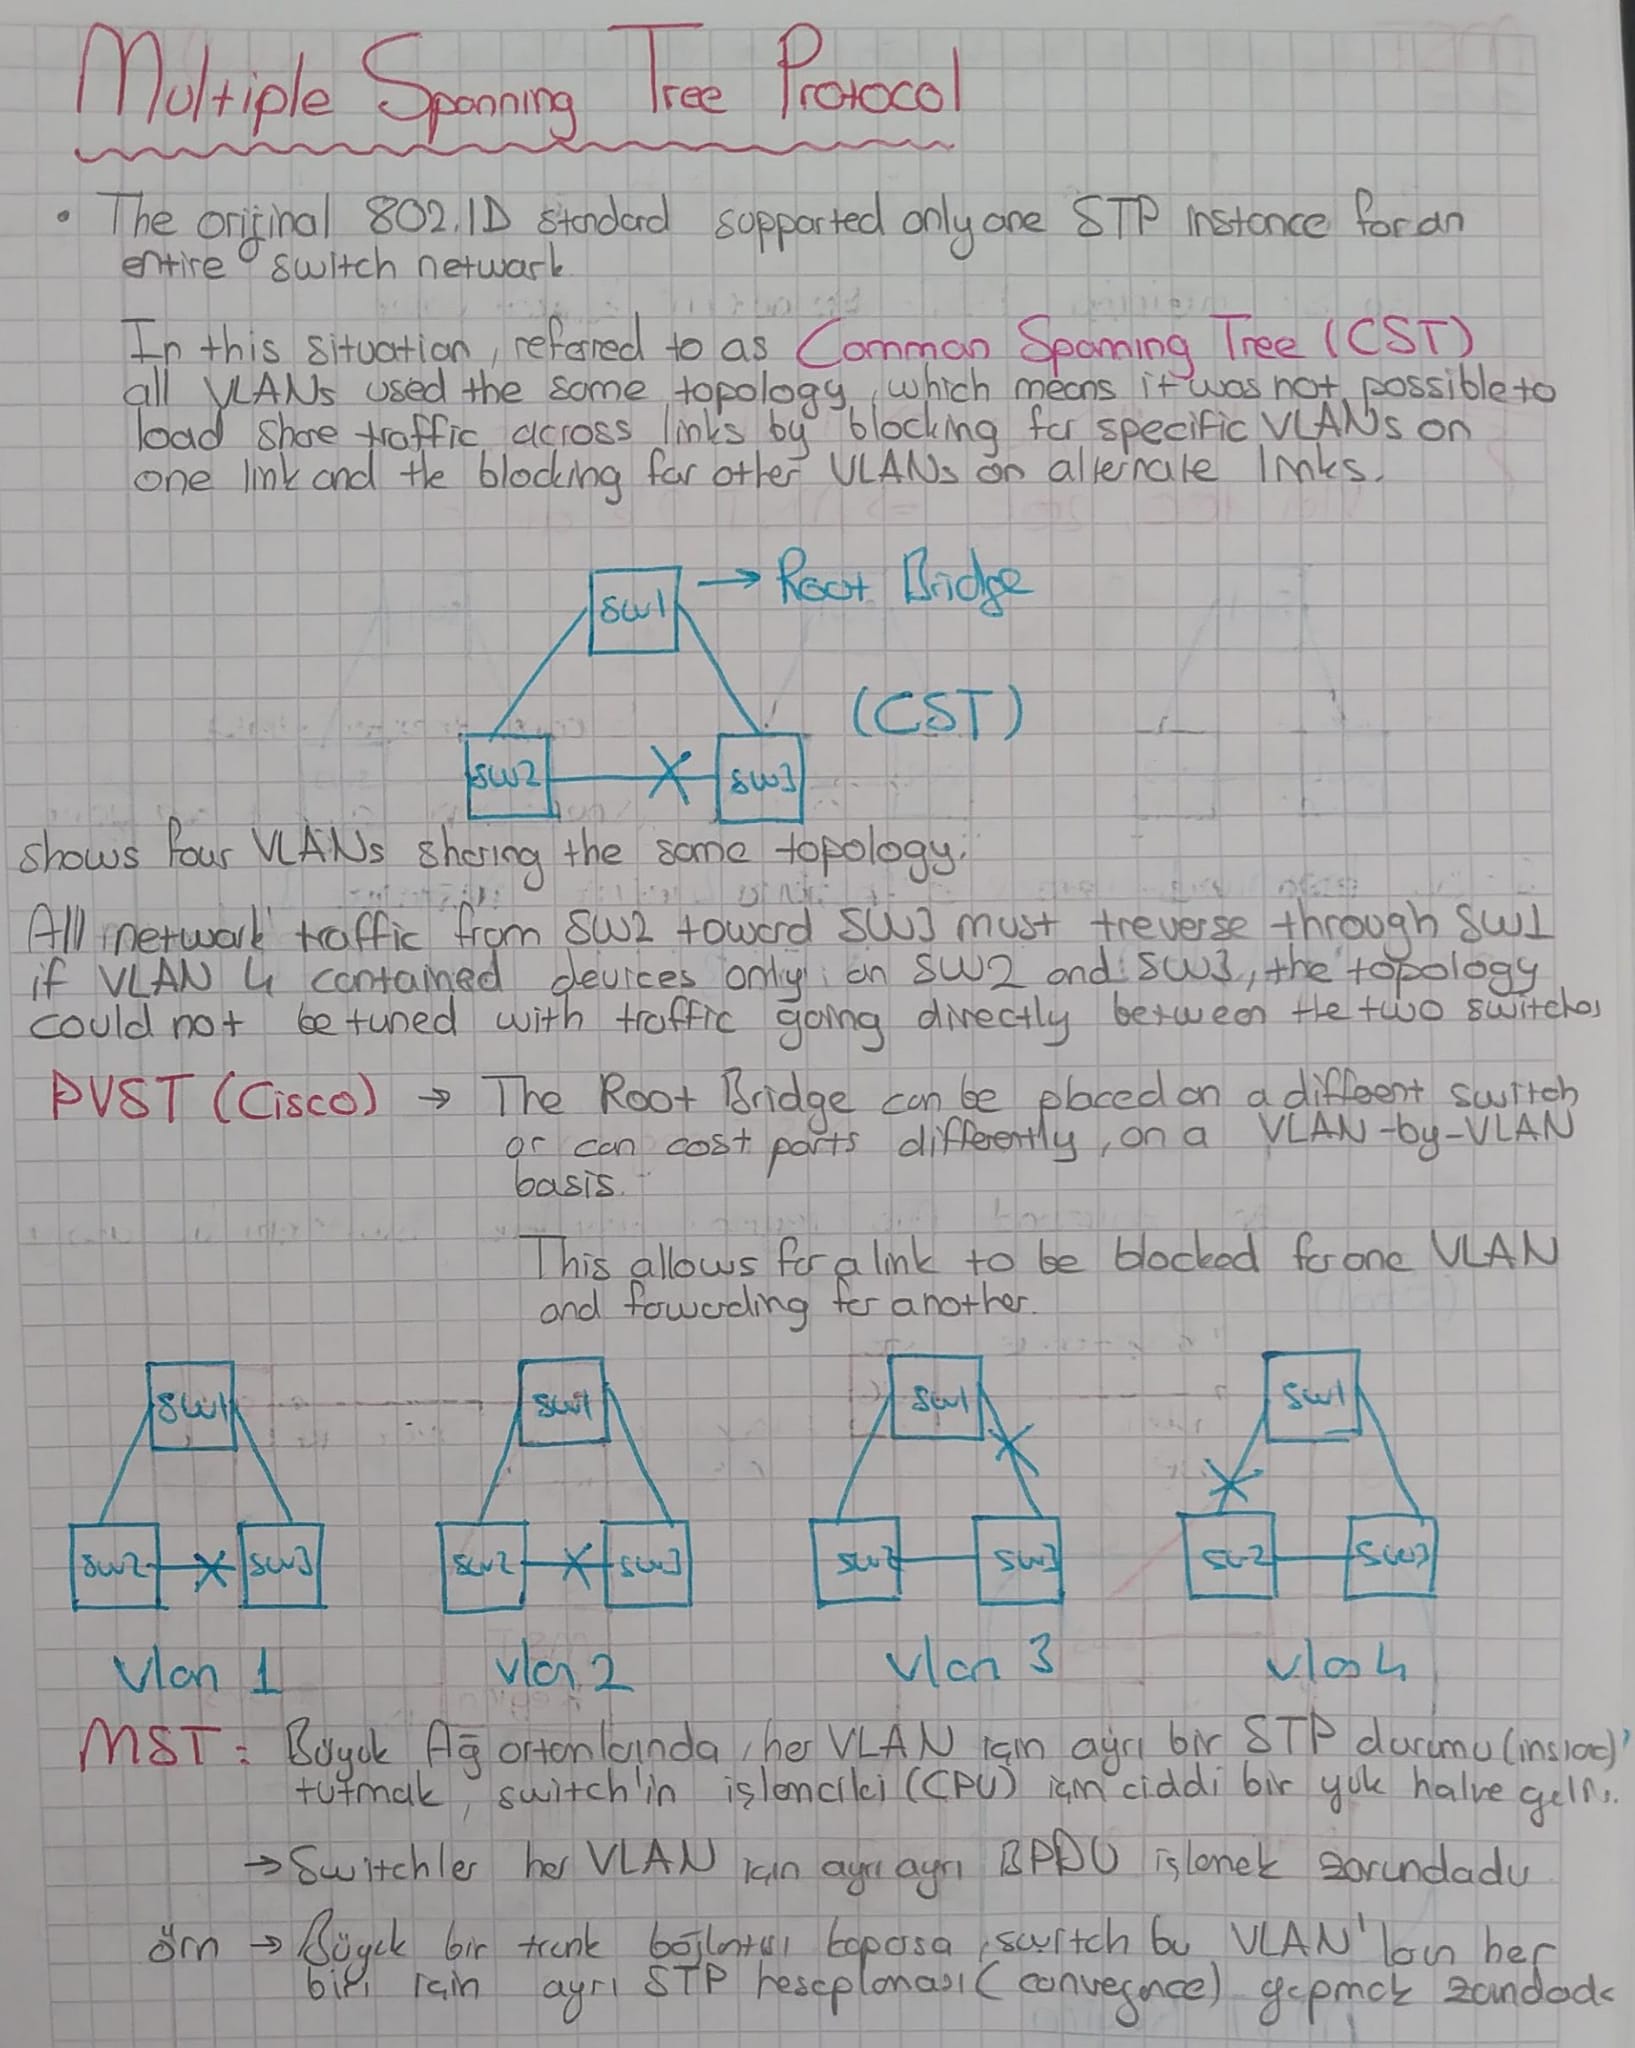 Multiple Spanning Tree Protocol
• The original 802.1D standard supported only one STP instance for an
entire switch network
In this situation, referred to as Common Spanning Tree (CST)
all VLANs used the same topology, which means it was not possible to
load share traffic across links by blocking for specific VLANs on
one link and the blocking for other VLANs on alternate links.
SW1 → Root Bridge
(CST)
SW2 SW3
shows four VLANs sharing the same topology.
All network traffic from SW2 toward SW3 must treverse through SW1
if VLAN 4 contained devices only on SW2 and SW3, the topology
could not be tuned with traffic going directly between the two switches
PVST (Cisco) → The Root Bridge can be placed on a different switch
or can cost ports differently, on a VLAN-by-VLAN
basis.
This allows for a link to be blocked for one VLAN
and forwarding for another.
SW1 SW1 SW1 SW1
SW2 SW3 SW2 SW3 SW2 SW3 SW2 SW3
Vlan 1 Vlan 2 Vlan 3 Vlan 4
MST: Büyük Ağ ortamlarında, her VLAN için ayrı bir STP durumu
tutmak, switch'in işlemcisi (CPU) için ciddi bir yük haline gelir.
→ Switchler her VLAN için ayrı ayrı BPDU işlemek zorundadır
örn → Büyük bir trunk bağlantısı koparsa, switch bu VLAN'ların her
biri için ayrı STP hesaplaması (convergence) yapmak zorundadır